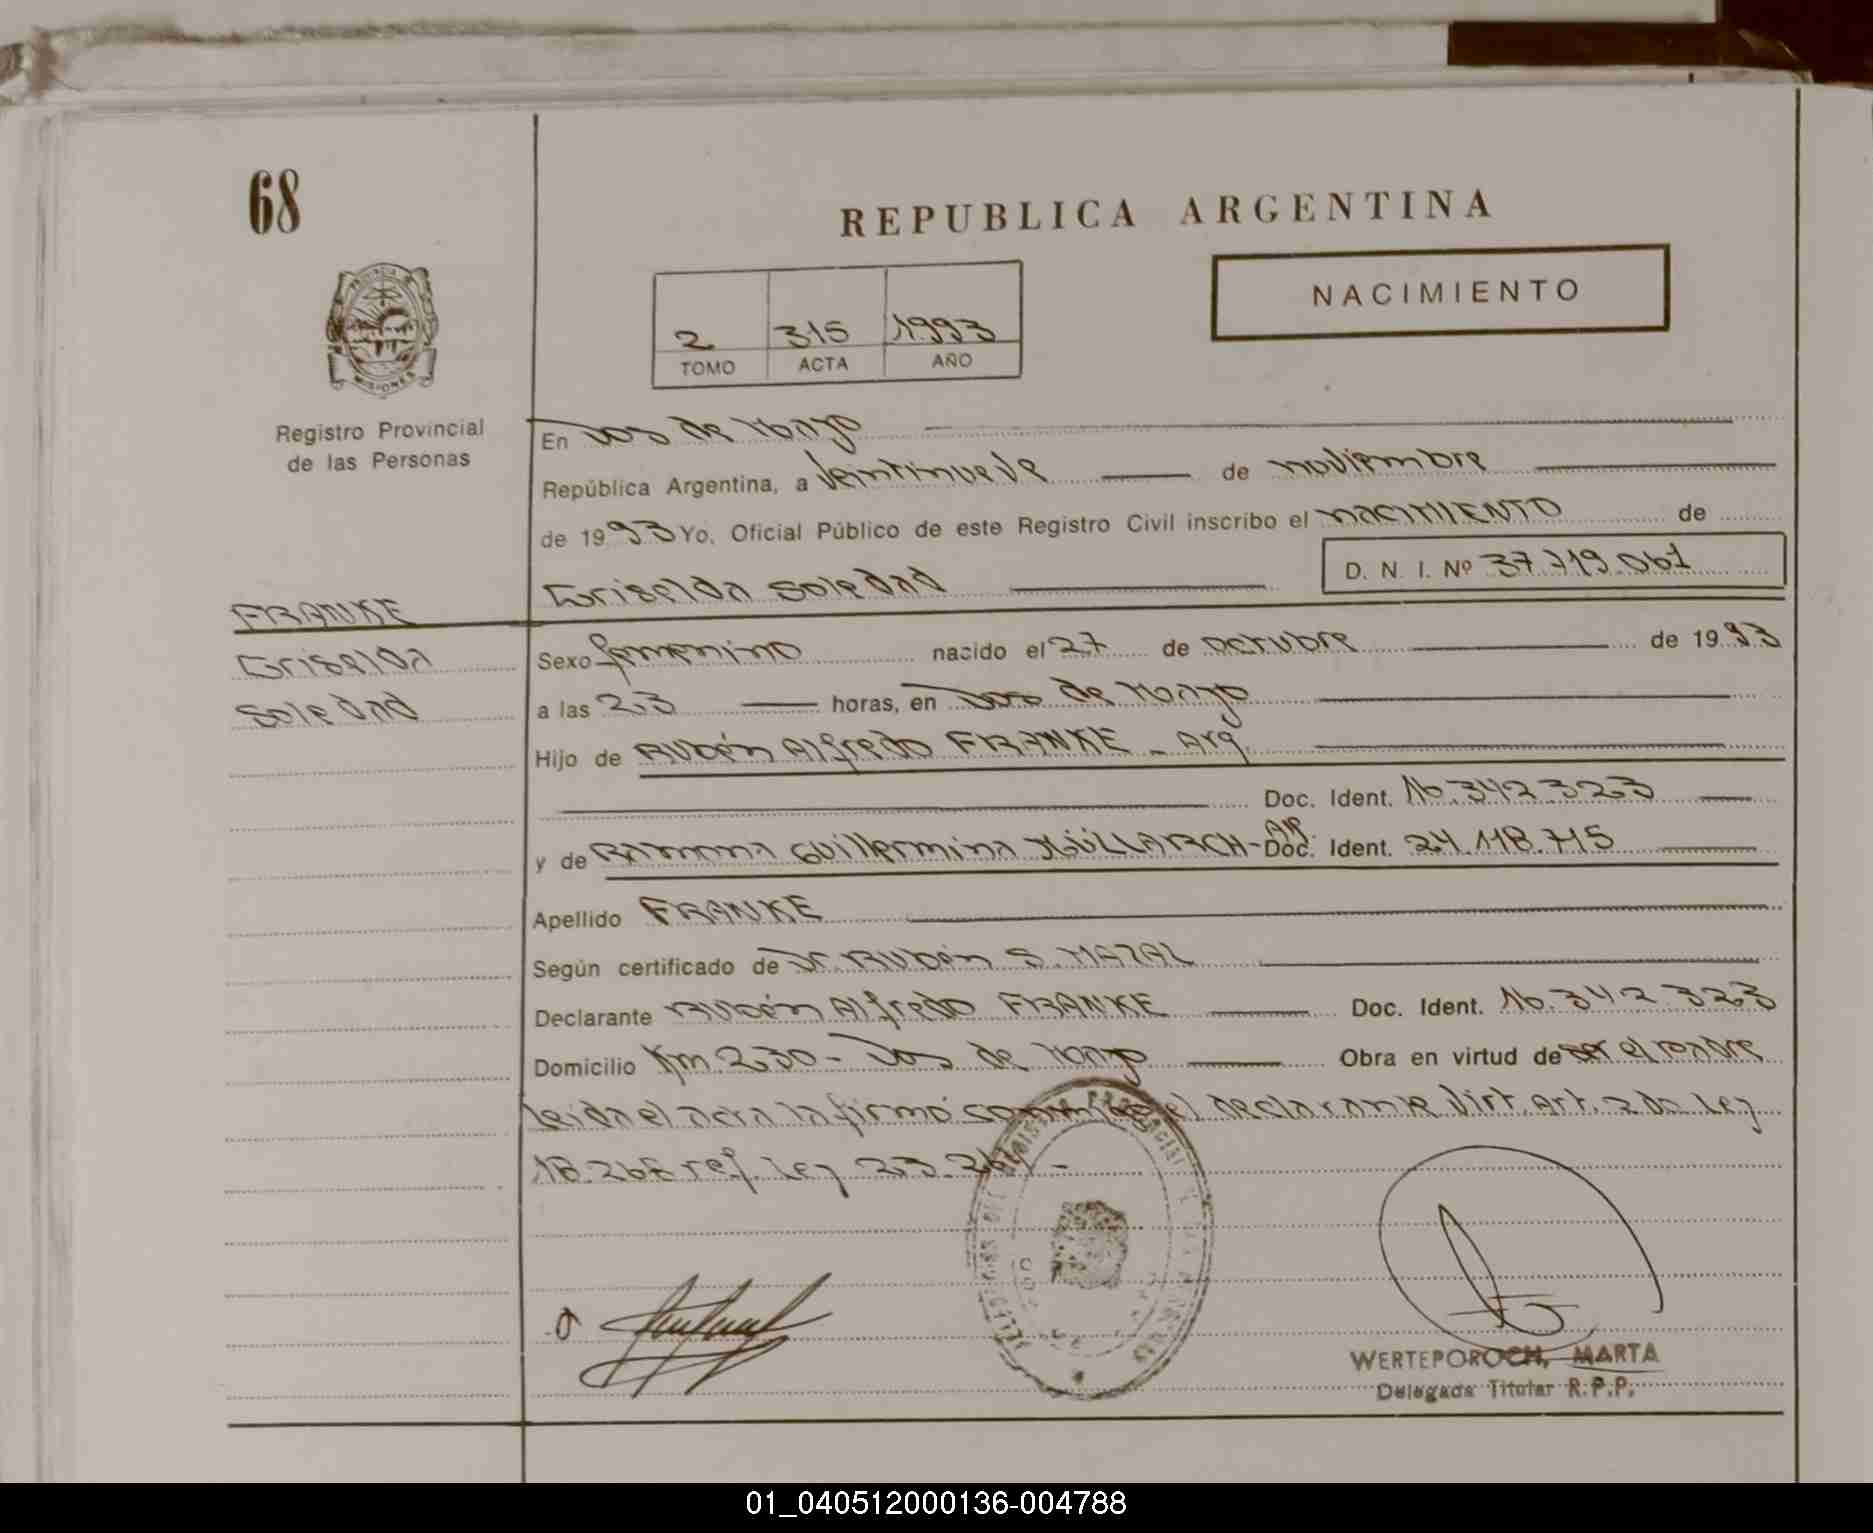 68
REPUBLICA ARGENTINA
NACIMIENTO
2 315 1993
TOMO ACTA AÑO
PROVINCIA DE MISIONES
Registro Provincial
de las Personas
En Dos de Mayo
República Argentina, a veintinueve de noviembre
de 1993 Yo, Oficial Público de este Registro Civil inscribo el nacimiento de
Griselda Soledad D. N. I. Nº 37.719.061
FRANKE
Griselda
Soledad
Sexo femenino nacido el 27 de octubre de 1993
a las 23 horas, en Dos de Mayo
Hijo de Rubén Alfredo FRANKE - Arg.
Doc. Ident. 16.342.323
y de Ramona Guillermina - Doc. Ident. 24.118.715
Apellido FRANKE
Según certificado de Dr. Rubén S. MAZAL
Declarante Rubén Alfredo FRANKE Doc. Ident. 16.342.323
Domicilio Km 230 - Dos de Mayo Obra en virtud de ser el padre
leida el acta la firmó conmigo el declarante Virt. Art. 2 de Ley
18.248 ref. Ley 23.264 -
WERTEPOROCH, MARTA
Delegada Titular R.P.P.
01_040512000136-004788